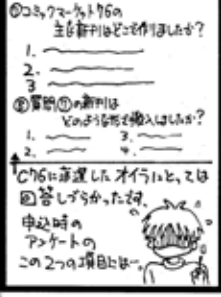 ①コミックマーケット76の
主な新刊はどこで作りましたか?
1.
2.
3
②質問①の新刊は
どのような形で搬入しましたか?
1. 3.
2. 4.
C76に落選したオイラにとっては
回答しづらかったです。
申込時の
アンケートの
この2つの項目には…